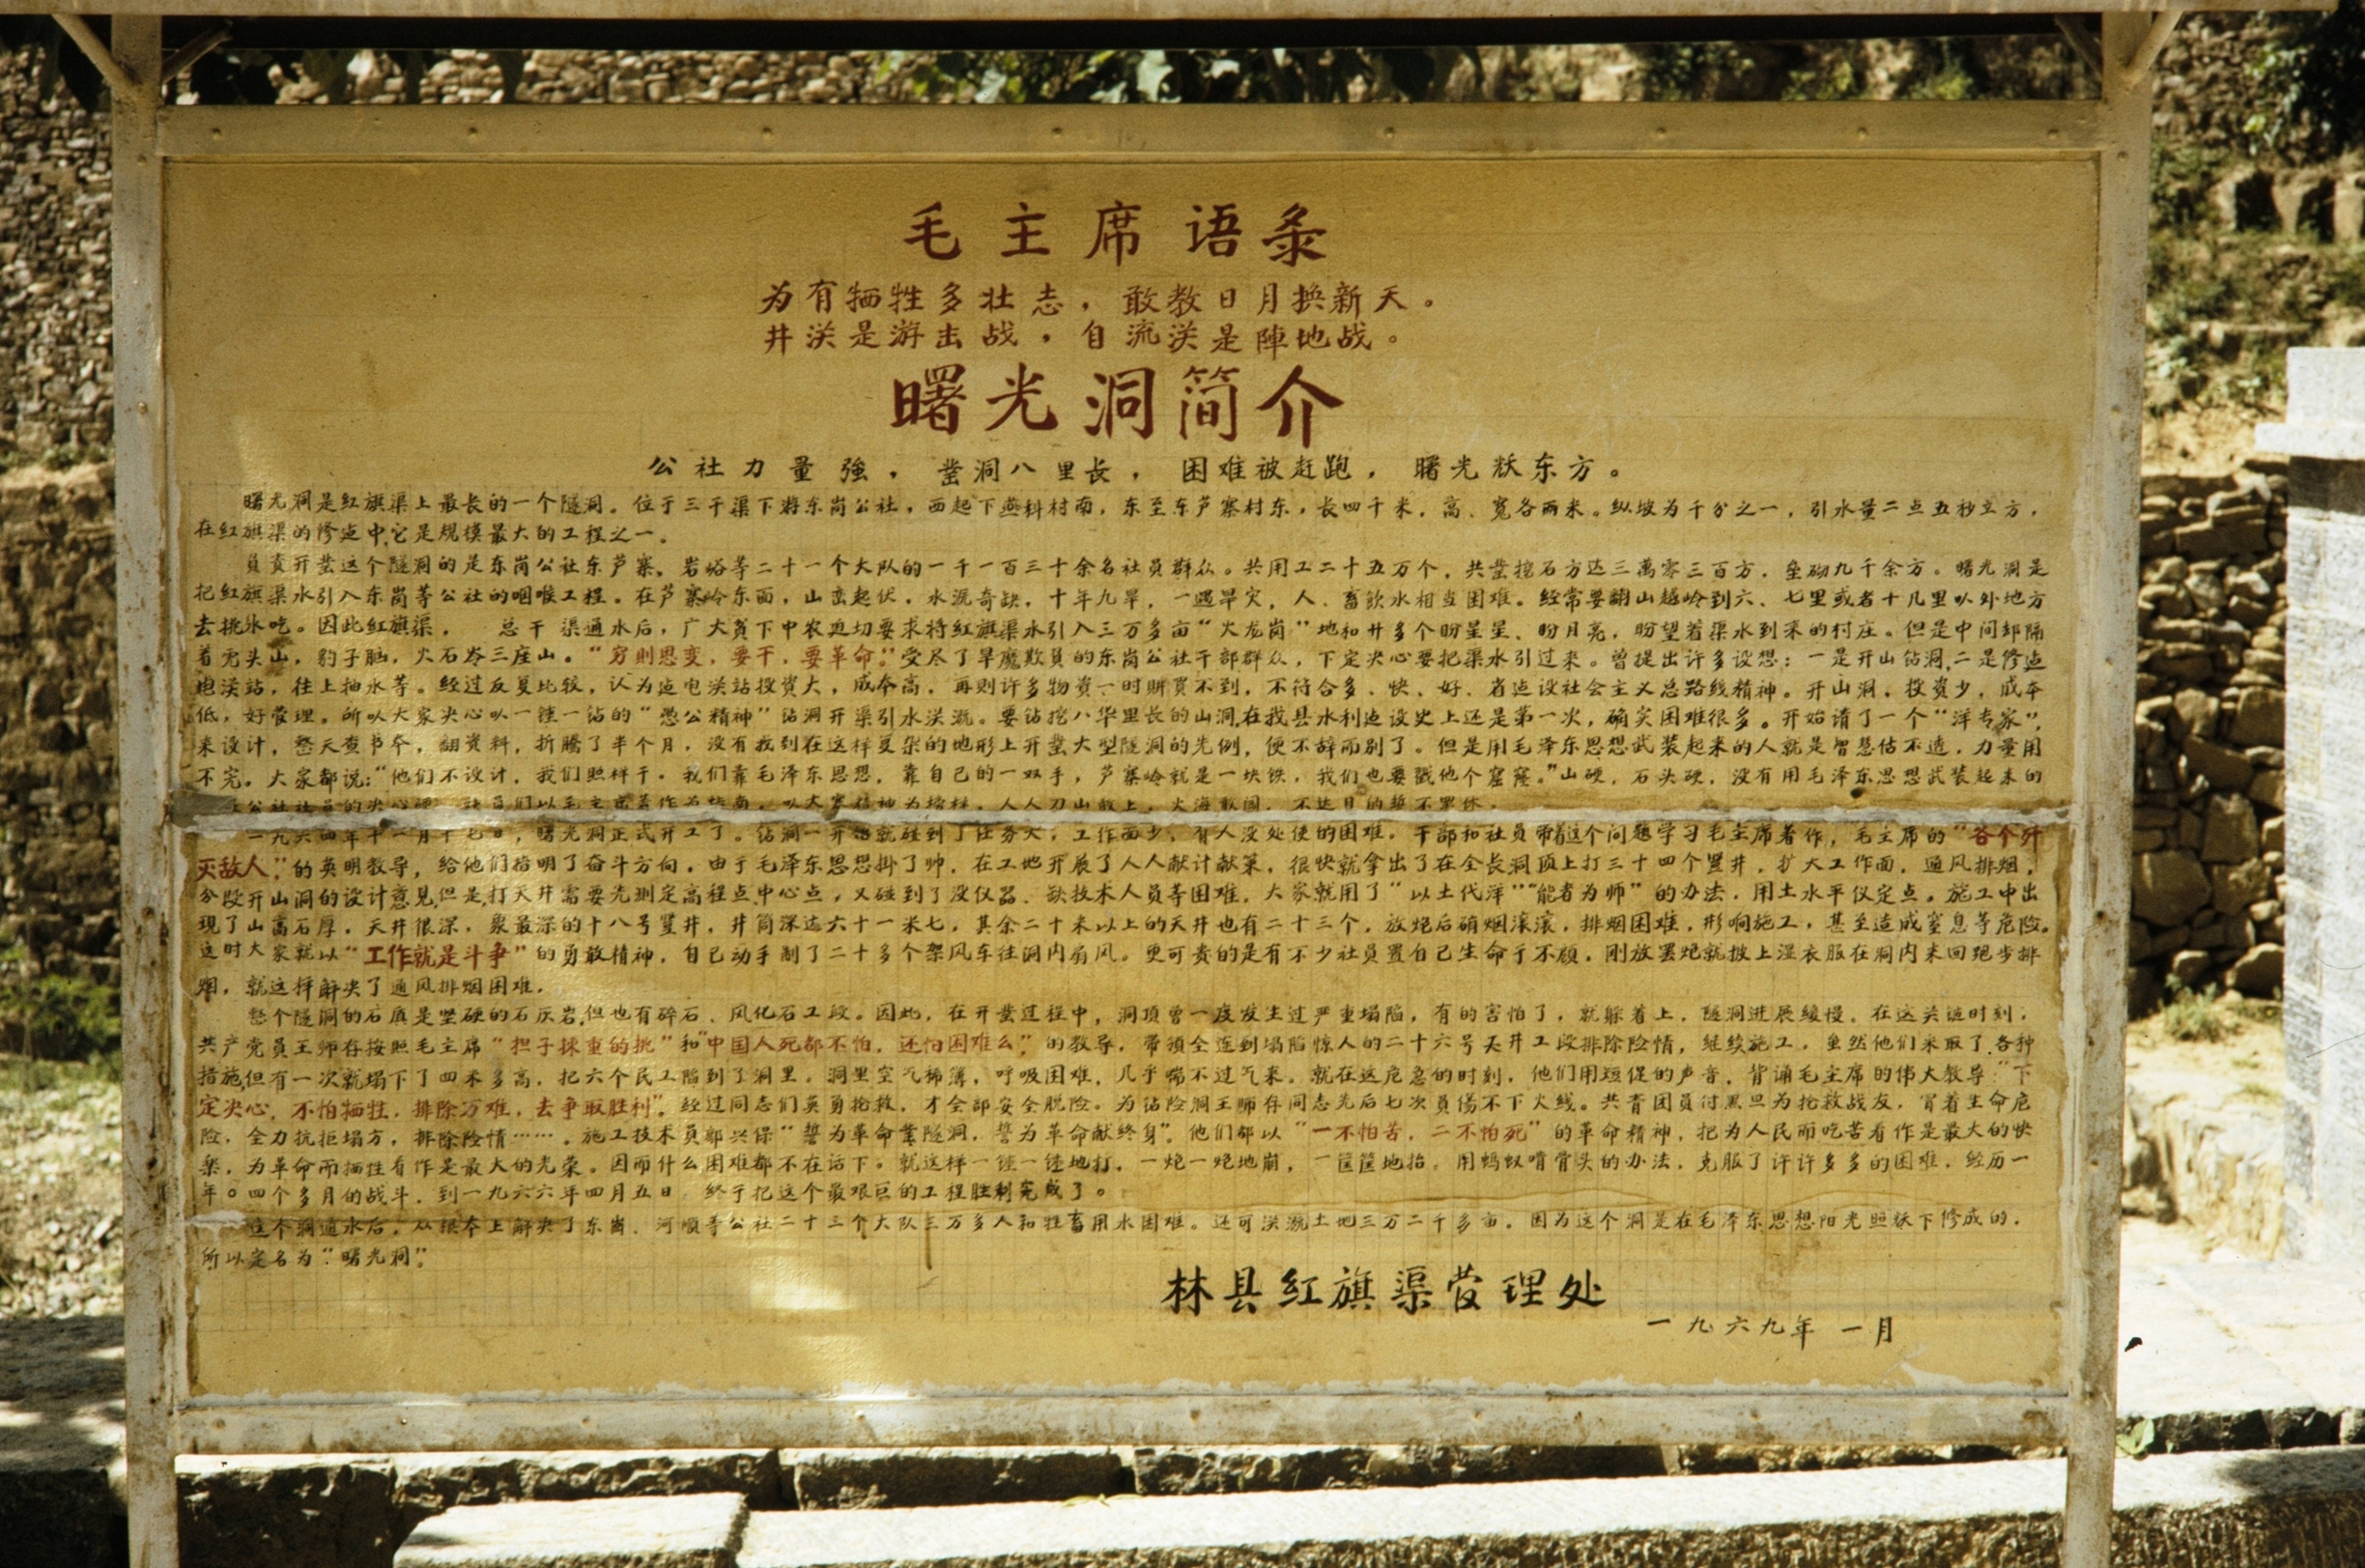 毛主席语录
为有牺牲多壮志，敢教日月换新天。
井浂是游击战，自流浂是陣地战。
曙光洞简介
公社力量強，凿洞八里长，困难被赶跑，曙光跃东方。
曙光洞是红旗渠上最长的一个隧洞。位于三干渠下游东岗公社，西起下燕科村南，东至东芦寨村东，长四千米，高、宽各两米。纵坡为千分之一，引水量二点五秒立方，
在红旗渠的修造中，它是规模最大的工程之一。
員責开凿这个隧洞的是东岗公社东芦寨，岩峪等二十一个大队的一千一百三十余名社员群众。共用工二十五万个，共凿挖石方达三萬零三百方，垒砌九千余方。曙光洞是
把红旗渠水引入东岗等公社的咽喉工程。在芦寨岭东面，山峦起伏，水源奇缺，十年九旱，一遇旱灾，人、畜飲水相当困难。经常要翻山越岭到六、七里或者十几里以外地方
去挑水吃。因此红旗渠， 总干渠通水后，广大貧下中农迫切要求将红旗渠水引入三万多亩“火龙岗”地和廿多个盼星星、盼月亮，盼望着渠水到来的村庄。但是中间却隔
着壳头山，豹子脑，火石岺三座山。“穷则思变，要干，要革命。”受尽了旱魔欺負的东岗公社干部群众，下定决心要把渠水引过来。曾提出许多设想：一是开山钻洞，二是修造
电浂站，往上抽水等。经过反复比较，认为造电浂站投資大，成夲高，再则许多物資一时購買不到，不符合多、快、好、省造设社会主义总路线精神。开山洞，投资少，成夲
低，好管理。所以大家决心以一锤一钻的“愚公精神”钻洞开渠引水浂溉。要钻挖八华里长的山洞，在我县水利造设史上还是第一次，确实困难很多。开始请了一个“洋专家”，
来设计，整天查书夲，翻资料，折腾了半个月，没有找到在这样复杂的地形上开凿大型隧洞的先例，便不辞而别了。但是用毛泽东思想武装起来的人就是智慧估不透，力量用
不完。大家都说：“他们不设计，我们照样干。我们靠毛泽东思想，靠自己的一双手，芦寨岭就是一块铁，我们也要戳他个窟窿。”山硬，石头硬，没有用毛泽东思想武装起来的
公社社员的决心硬，社员们以毛主席著作为指南，以大寨精神为榜样，人人刀山敢上，火海敢闯，不达目的誓不罢休。
一九六四年十一月十七日，曙光洞正式开工了。钻洞一开始就碰到了任务大，工作面少，有人没处使的困难。干部和社员带着这个问题学习毛主席著作，毛主席的“各个歼
灭敌人，”的英明教导，给他们指明了奋斗方向。由于毛泽东思想掛了帅，在工地开展了人人献计献策，很快就拿出了在全长洞顶上打三十四个竖井，扩大工作面，通风排烟，
分段开山洞的设计意见，但是，打天井需要先测定高程点，中心点，又碰到了没仪器、缺技术人员等困难，大家就用了“以土代洋”“能者为师”的办法，用土水平仪定点。施工中出
现了山高石厚，天井很深，象最深的十八号竖井，井筒深达六十一米七，其余二十米以上的天井也有二十三个，放炮后硝烟滚滚，排烟困难，形响施工，甚至造成窒息等危险。
这时大家就以“工作就是斗争”的勇敢精神，自己动手制了二十多个架风车往洞内扇风。更可贵的是有不少社员置自己生命于不顾，刚放罢炮就披上湿衣服在洞内来回跑步排
烟，就这样解决了通风排烟困难。
整个隧洞的石质是坚硬的石灰岩，但也有碎石、风化石工段。因此，在开凿过程中，洞顶曾一度发生过严重塌陷，有的害怕了，就躲着上，隧洞进展缓慢。在这关键时刻，
共产党员王师存按照毛主席“担子拣重的挑”和“中国人死都不怕，还怕困难么”的教导，带领全连到塌陷惊人的二十六号天井工段排除险情，继续施工，虽然他们采取了各种
措施，但有一次就塌下了四米多高，把六个民工陷到了洞里。洞里空气稀薄，呼吸困难，几乎喘不过气来。就在这危急的时刻，他们用短促的声音，背诵毛主席的伟大教导：“下
定决心，不怕牺牲，排除万难，去争取胜利”。经过同志们英勇抢救，才全部安全脱险。为钻险洞王师存同志先后七次負傷不下火线。共青团员付黑旦为抢救战友，冒着生命危
险，全力抗拒塌方，排除险情……。施工技术员郭兴保“誓为革命凿隧洞，誓为革命献终身”。他们都以“一不怕苦，二不怕死”的革命精神，把为人民而吃苦看作是最大的快
乐，为革命而牺牲看作是最大的光荣。因而什么困难都不在话下。就这样一锤一锤地打，一炮一炮地崩，一筐筐地抬。用蚂蚁啃骨头的办法，克服了许许多多的困难，经历一
年。四个多月的战斗，到一九六六年四月五日，终于把这个最艰巨的工程胜利完成了。
这个洞通水后，从根夲上解决了东岗、河顺等公社二十三个大队三万多人和牲畜用水困难。还可浂溉土地三万二千多亩。因为这个洞是在毛泽东思想阳光照跃下修成的，
所以定名为“曙光洞”。
林县红旗渠管理处
一九六九年 一月